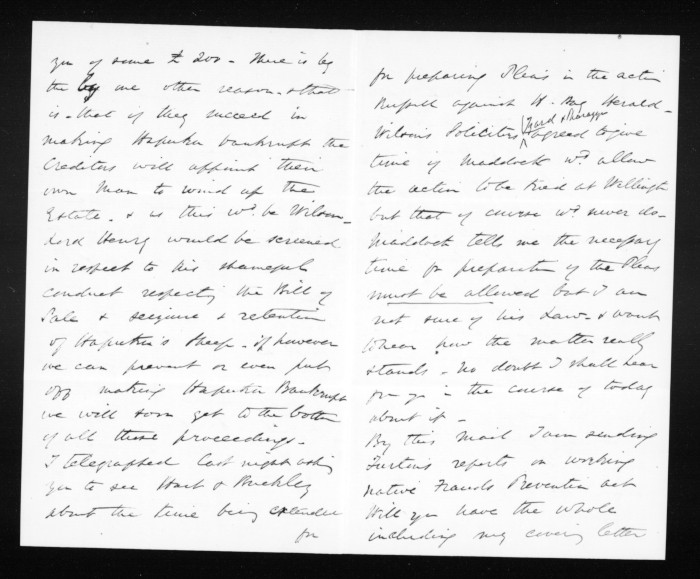 you of some £200 - There is by
the by one other reason - & that
is - that if they succeed in
making Hapuku bankrupt the
Creditors will appoint their
own Man to wind up the
Estate - & as this wd. be Wilson -
lord Henry would be screened
in respect to his shameful
conduct respecting the Bill of
Sale & seizure & retention
of Hapuku's sheep - if however
we can prevent or even put
off making Hapuku Bankrupt
we will soon get to the bottom
of all these proceedings -
I telegraphed last night asking
you to see Hart & Buckley
about the time being extended
for
for preparing Pleas in the action
Russell against H. Bay Herald -
Wilson's Solicitors Izard & agreed to give
time if Maddock wd. allow
the action to be tried at Wellington
but that of course wd. never do -
Maddock tells me the necessary
time for preparation of the Pleas
must be allowed but I am
not sure of his law - & want
to hear how the matter really
stands - No doubt I shall hear
from you in the course of today
about it -
By this Mail I am sending
Turton's reports on working
native Frauds Prevention act
Will you have the whole
including my covering letter